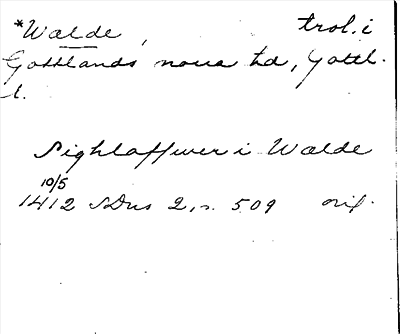 *Walde, trol. i
Gottlands norra hd, Gottl.
l.
Sighlaffwer i Walde
10/5
1412 SDns 2, s. 509 orig.